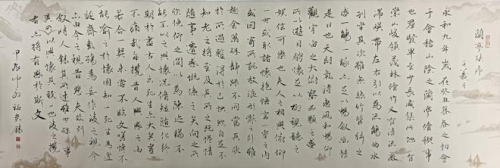 蘭亭集序
王羲之
永和九年歲在癸丑暮春之初會
于會稽山陰之蘭亭脩禊事
也羣賢畢至少長咸集此地有
崇山峻領茂林脩竹又有清流激
湍暎帶左右引以為流觴曲水
列坐其次雖無絲竹管弦之
盛一觴一詠亦足以暢敘幽情
是日也天朗氣清惠風和暢仰
觀宇宙之大俯察品類之盛
所以遊目騁懷足以極視聽之
娛信可樂也夫人之相與俯仰
一世或取諸懷抱悟言一室之內
或因寄所託放浪形骸之外雖
趣舍萬殊靜躁不同當其欣
於所遇蹔得於己快然自足不
知老之將至及其所之既惓情
隨事遷感慨係之矣向之所
欣俛仰之間以為陳迹猶不
能不以之興懷況脩短隨化終
期於盡古人云死生亦大矣豈
不痛哉每攬昔人興感之由
若合一契未嘗不臨文嗟悼不
能喻之於懷固知一死生為虛誕
齊彭殤為妄作後之視今
亦由今之視昔悲夫故列
敘時人錄其所述雖世殊事
異所以興懷其致一也後之攬
者亦將有感於斯文